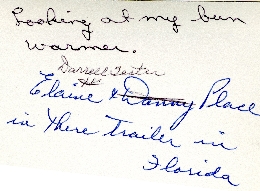 Looking at my bun
warmer.
Darrell Teater
Elaine & Danny Place
in there trailer in
Florida